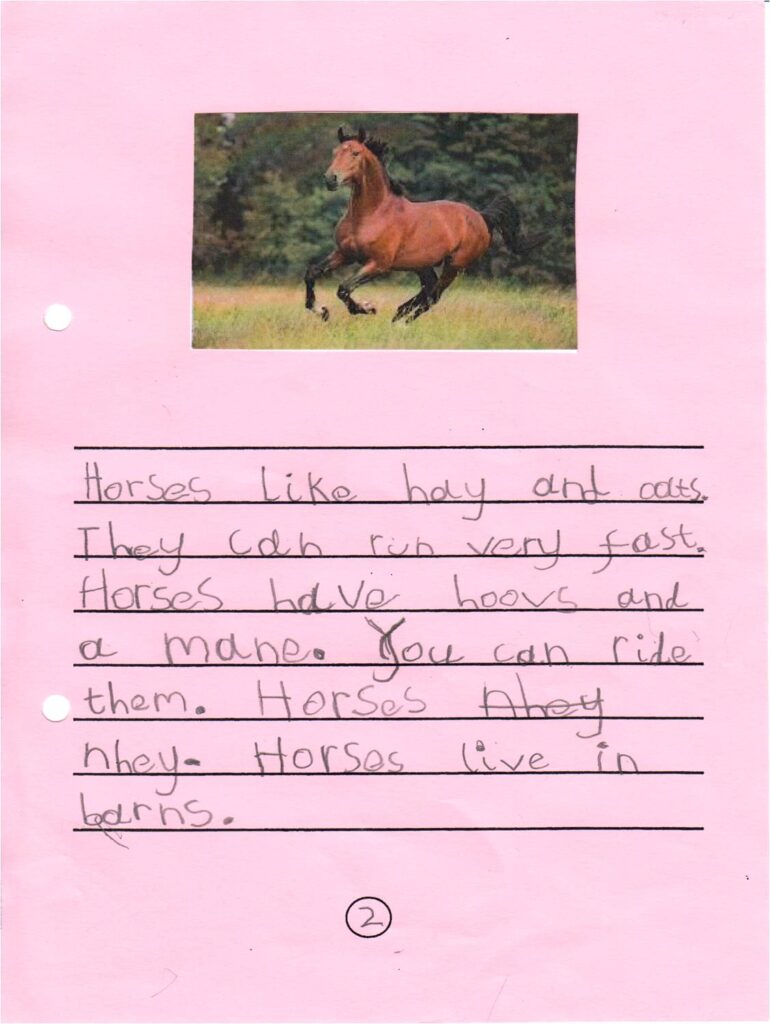 Horses like hay and oats.
They can run very fast.
Horses have hoovs and
a mane. You can ride
them. Horses ~~Nhey~~
nhey. Horses live in
barns.
2